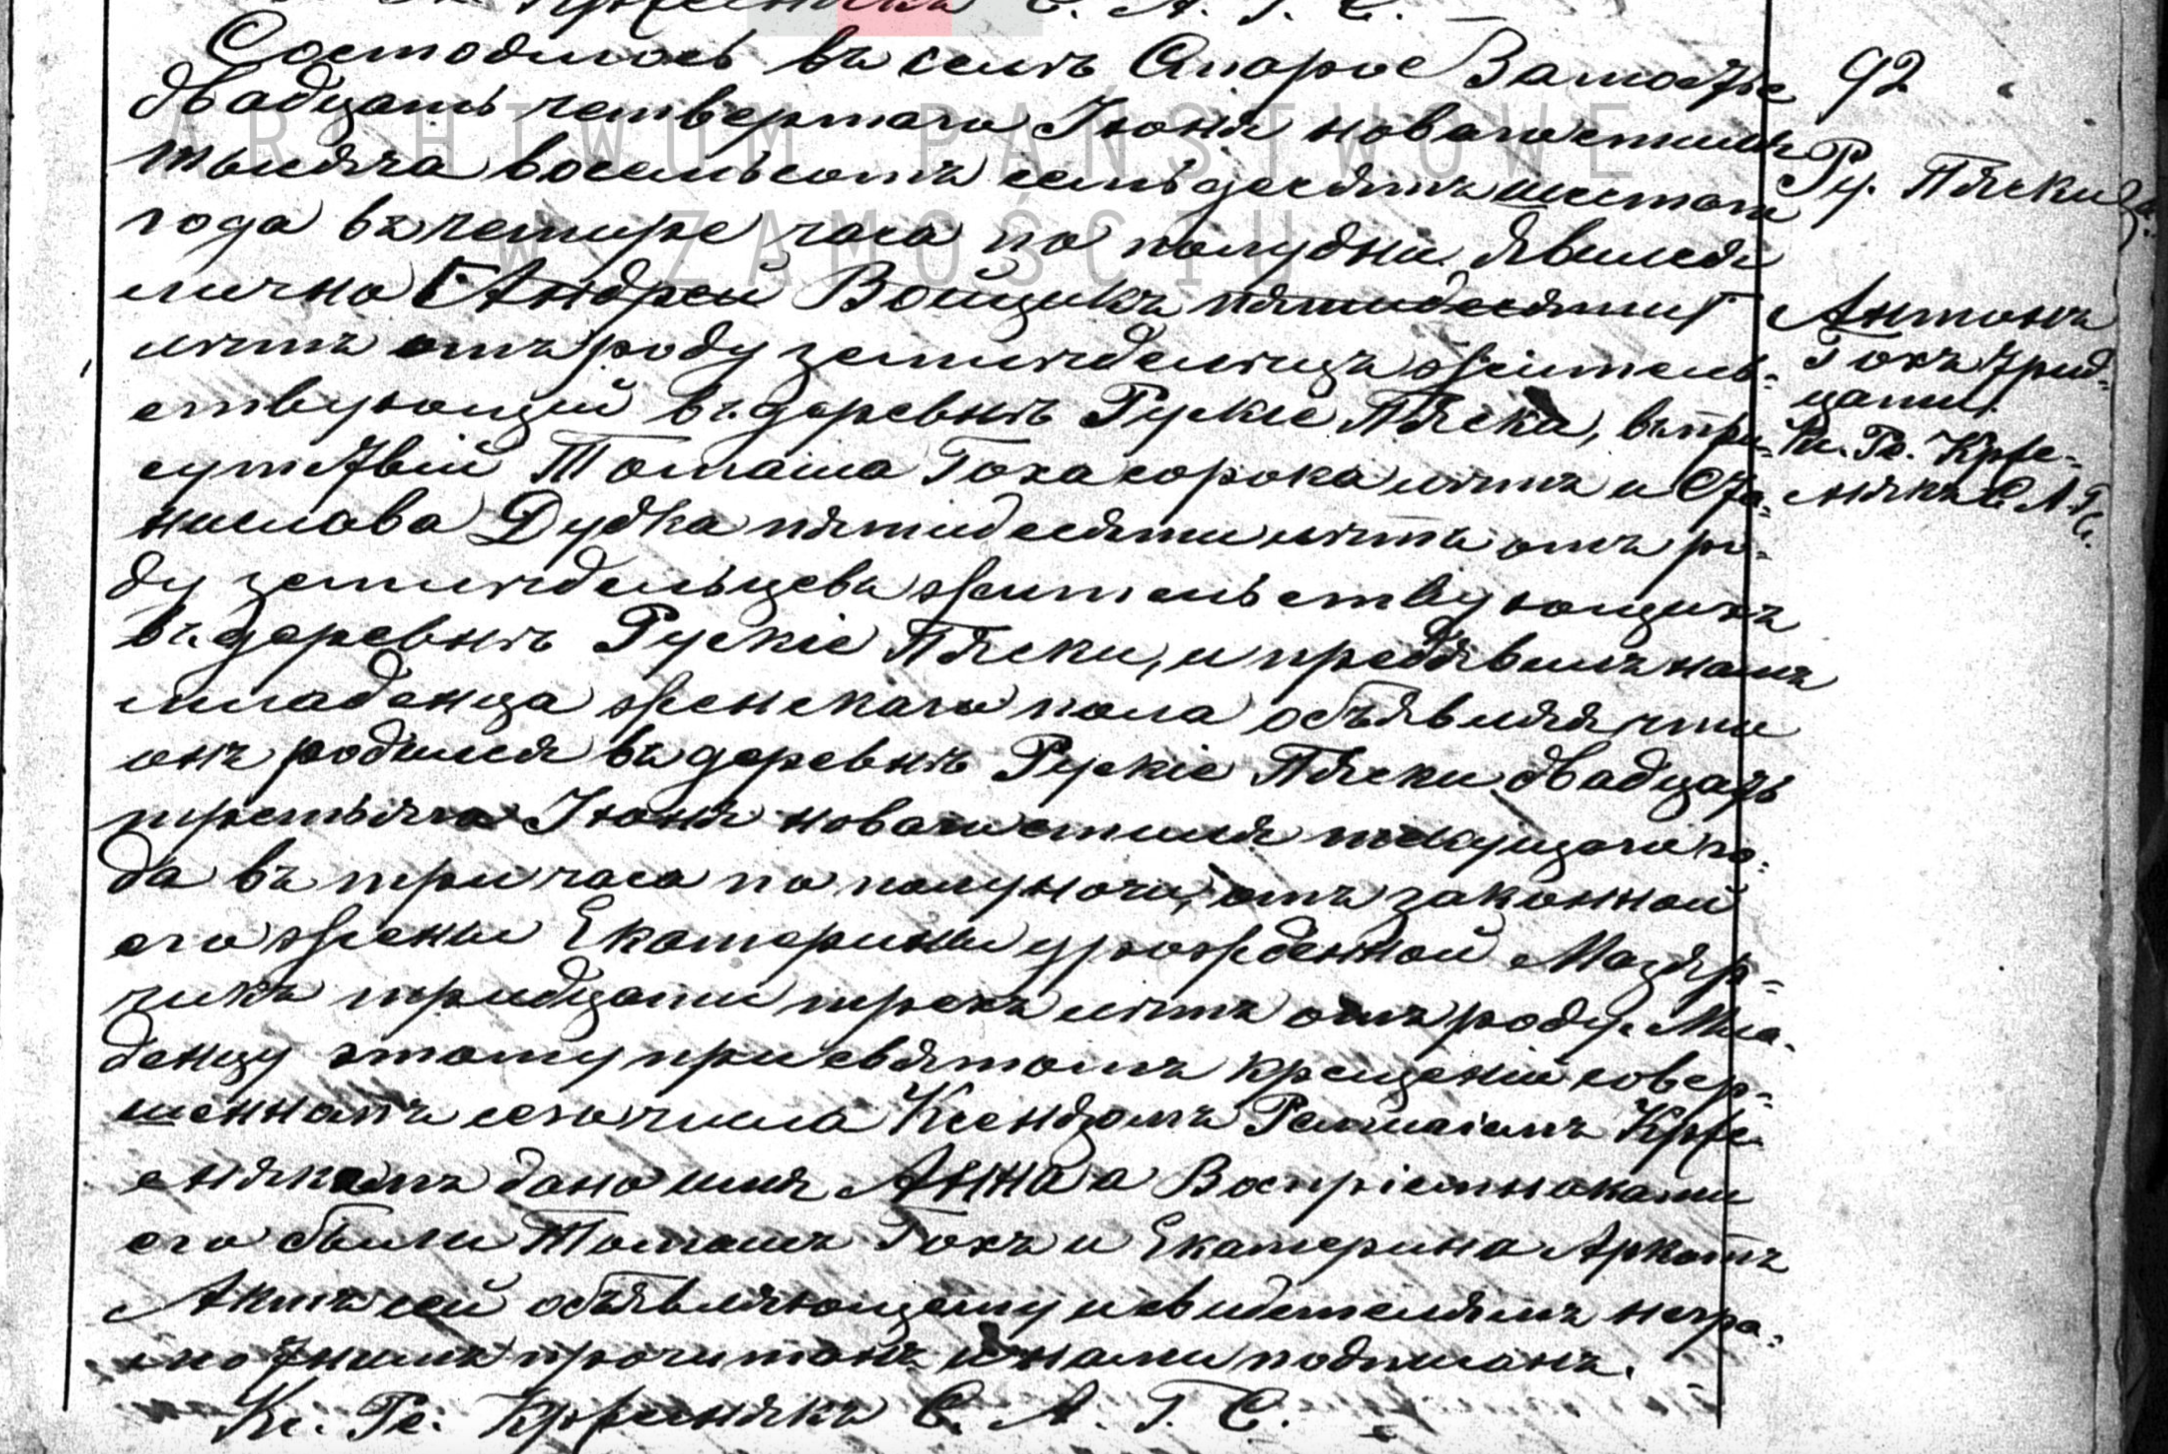 Состоялось въ селѣ Старое Замостье
двадцать четвертаго Іюня новаго стиля
тысяча восемьсотъ семьдесятъ шестаго
года въ четыре часа по полудни. Явился
лично Андрей Войцикъ пятидесяти
лѣтъ отъ роду земледѣлецъ житель-
ствующій въ деревнѣ Руские Пяски, въ при-
сутствіи Томаша Гоха сорока лѣтъ и Ста-
нислава Дудка пятидесяти лѣтъ отъ ро-
ду земледѣльцевъ жительствующихъ
въ деревнѣ Рускіе Пяски, и предъявилъ намъ
младенца женскаго пола объявляя что
онъ родился въ деревнѣ Рускіе Пяски двадцать
третьяго Іюня новаго стиля текущаго го-
да въ три часа по полуночи, отъ законной
его жены Екатерины урожденной Мазяр-
чикъ тридцати трехъ лѣтъ отъ роду. Мла-
денцу этому при святомъ крещеніи совер-
шенномъ сего числа Ксендзомъ Крже-
снякомъ дано имя Анна а Воспріемниками
его были Томашъ Гохъ и Екатерина
Актъ сей объявляющему и свидетелямъ негра-
мотнымъ прочитанъ и нами подписанъ.
Кс. Ре. С. А. Г. С.
92
Ру. Пяски
Антонъ
Гохъ трид-
цати
Кс. Ре. Крже-
снякъ С. А. Г. С.
ARCHIWUM PAŃSTWOWE
W ZAMOŚCIU